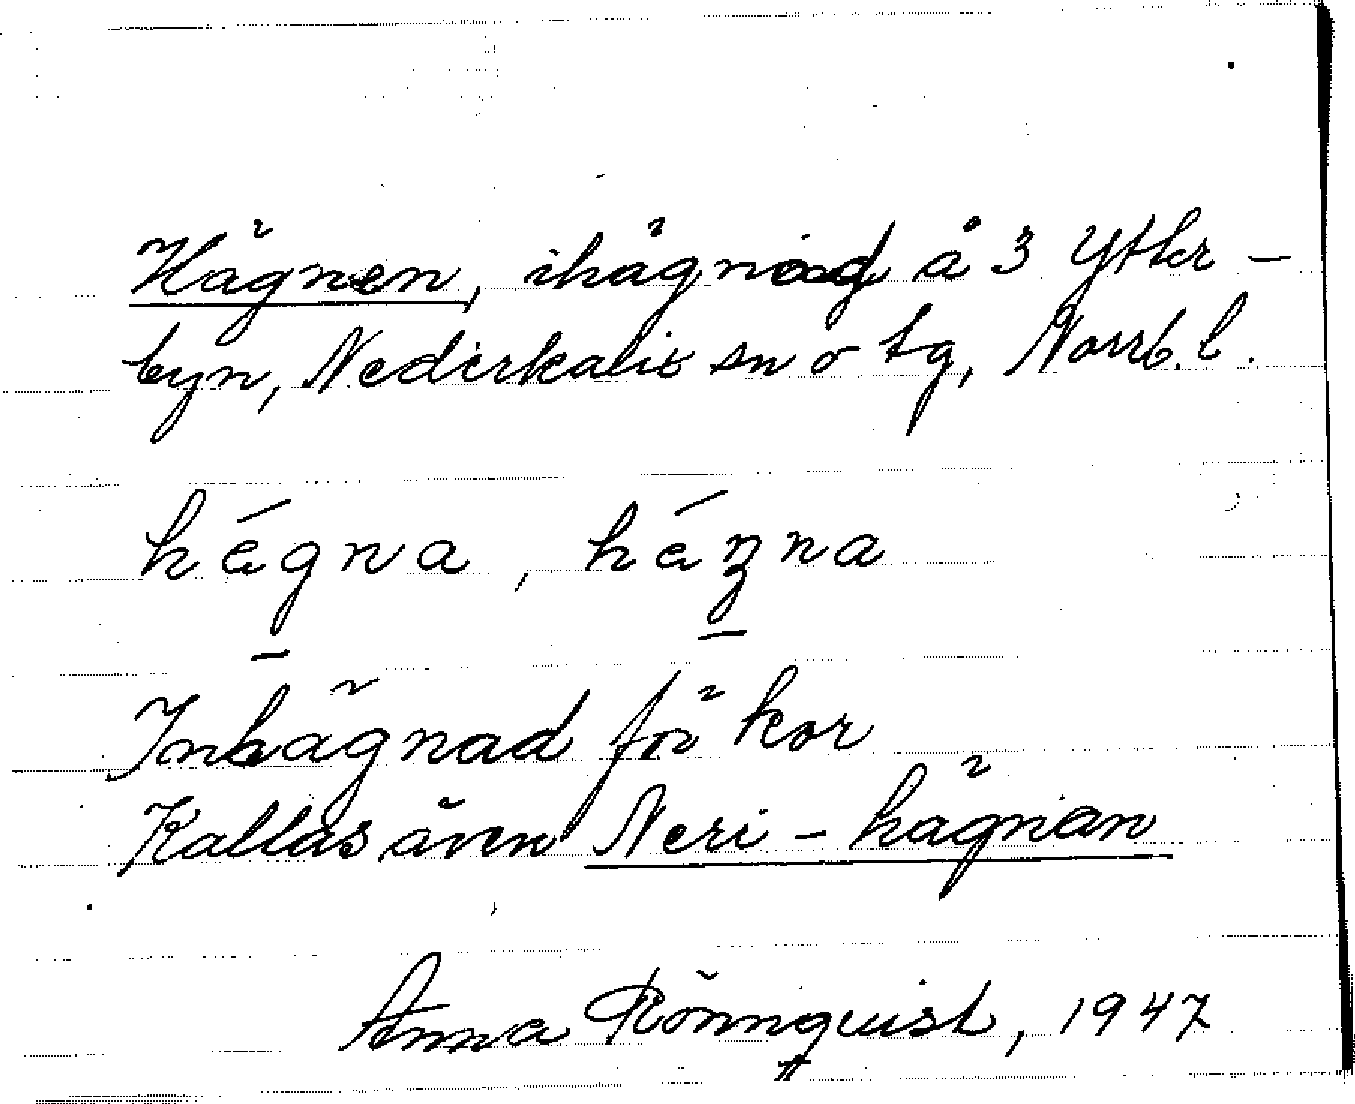 Hägnen, ihägnad å 3 Ytter-
byn, Nederkalix sn o tg, Norrb. l.
hégna, héȝna
Inhägnad för kor
Kallas även Neri-hägnan
Anna Rönnquist, 1947